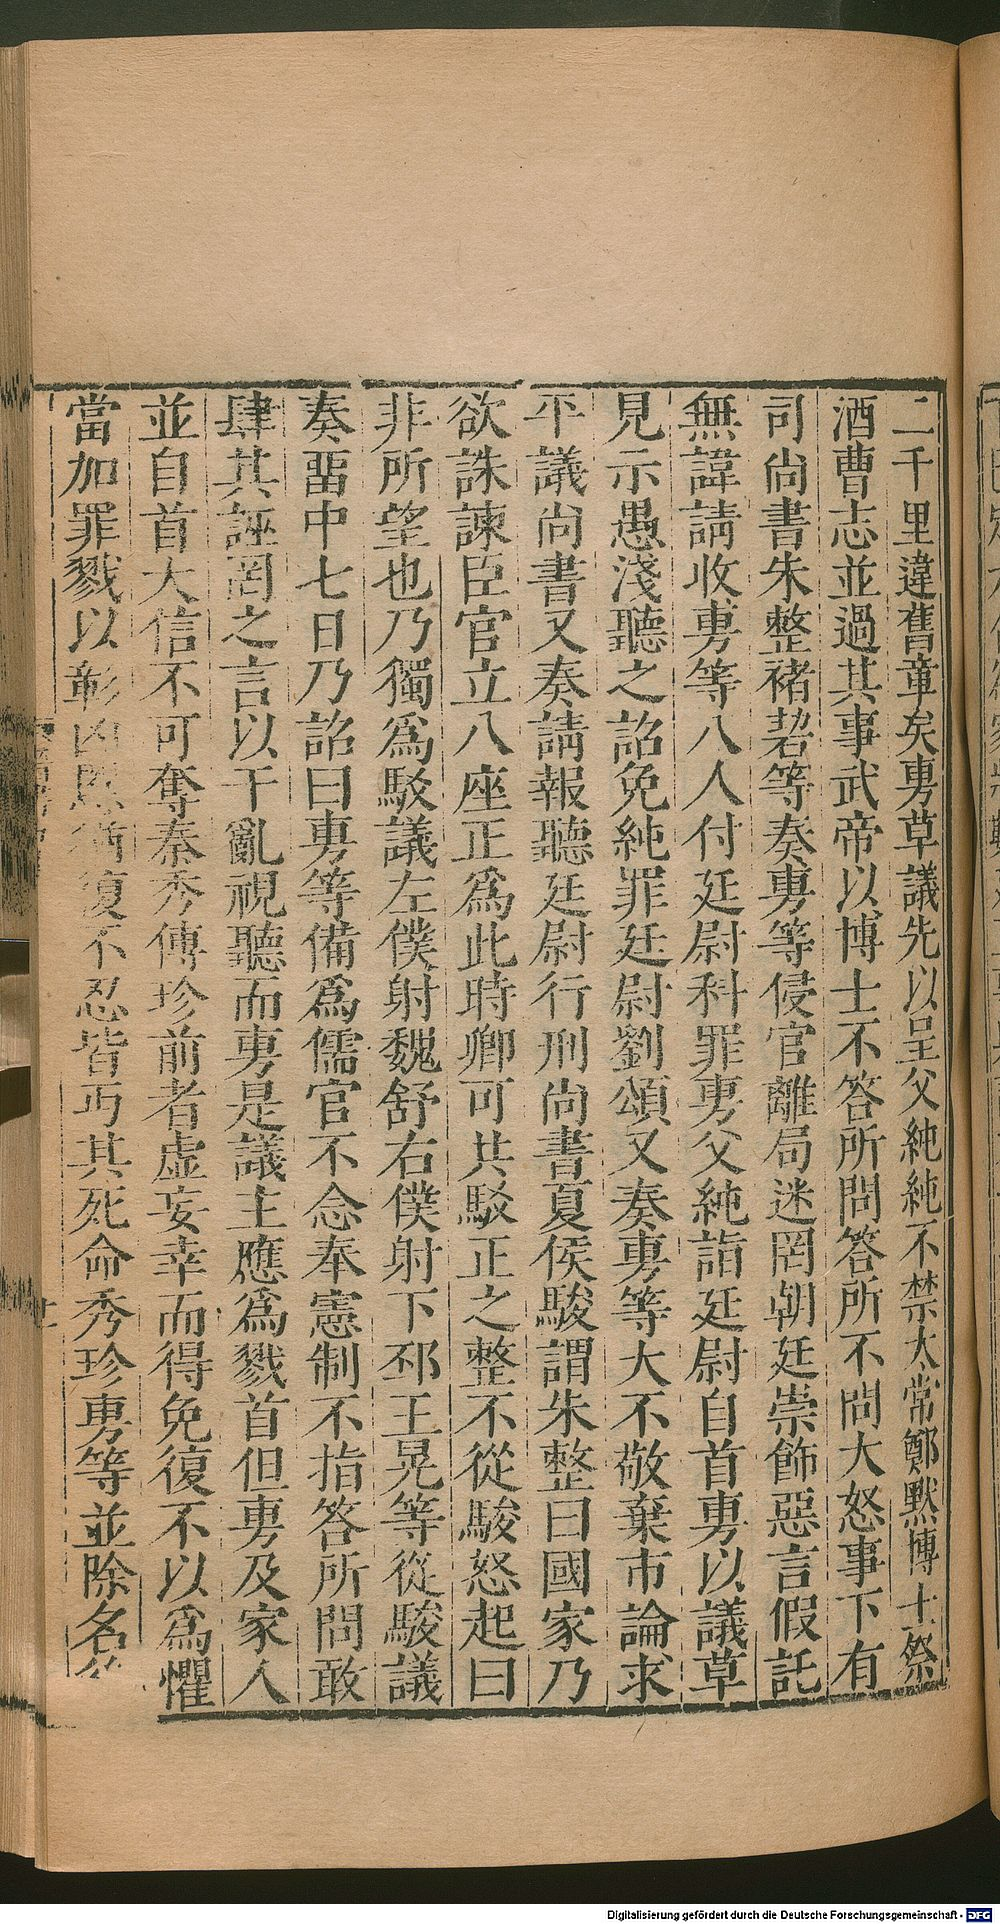 二千里違舊章矣旉草議先以呈父純純不禁太常鄭默博士祭
酒曹志並過其事武帝以博士不答所問答所不問大怒事下有
司尚書朱整褚䂮等奏旉等侵官離局迷罔朝廷崇飾惡言假託
無諱請收旉等八人付廷尉科罪旉父純詣廷尉自首旉以議草
見示愚淺聽之詔免純罪廷尉劉頌又奏旉等大不敬棄市論求
平議尚書又奏請報聽廷尉行刑尚書夏侯駿謂朱整曰國家乃
欲誅諫臣官立八座正爲此時卿可共駁正之整不從駿怒起曰
非所望也乃獨爲駁議左僕射魏舒右僕射下邳王晃等從駿議
奏畱中七日乃詔曰旉等備爲儒官不念奉憲制不指答所問敢
肆其誣罔之言以干亂視聽而旉是議主應爲戮首但旉及家人
並自首大信不可奪秦秀傅珍前者虛妄幸而得免復不以爲懼
當加罪戮以彰凶慝猶復不忍皆丐其死命秀珍旉等並除名
Digitalisierung gefördert durch die Deutsche Forschungsgemeinschaft - DFG